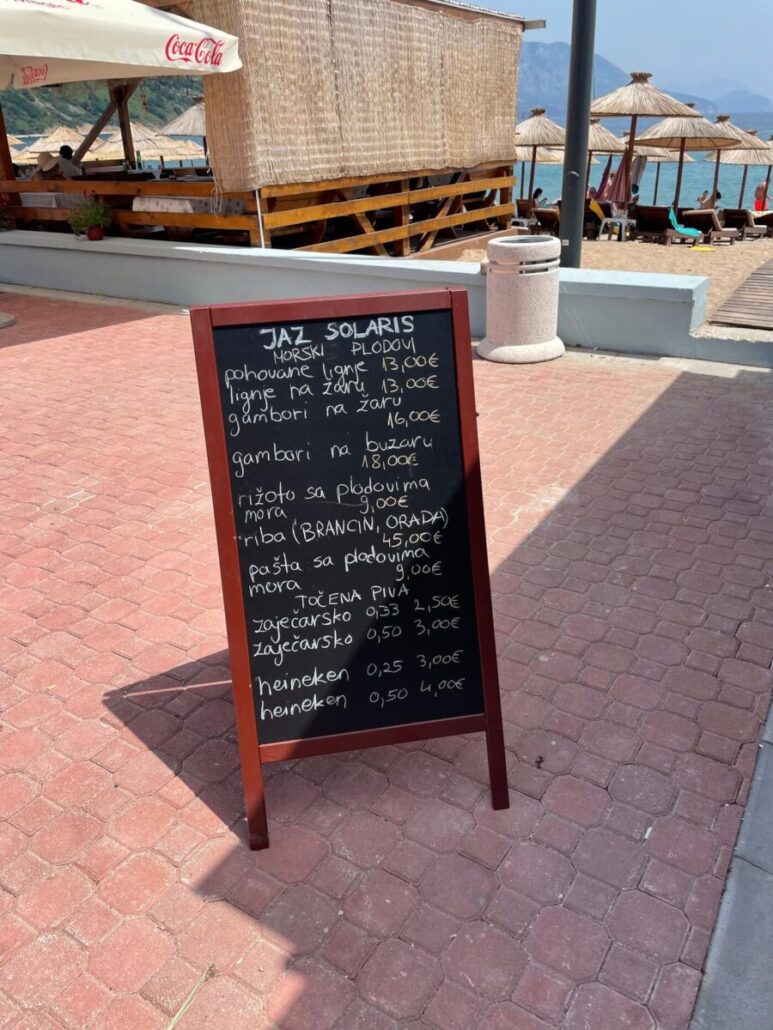 Coca-Cola
JAZ SOLARIS
MORSKI PLODOVI
pohovane lignje 13,00€
lignje na žaru 13,00€
gambori na žaru
16,00€
gambori na buzaru
18,00€
rižoto sa plodovima
mora 9,00€
riba (BRANCIN, ORADA)
45,00€
pašta sa plodovima
mora 9,00€
TOČENA PIVA
zaječarsko 0,33 2,50€
zaječarsko 0,50 3,00€
heineken 0,25 3,00€
heineken 0,50 4,00€